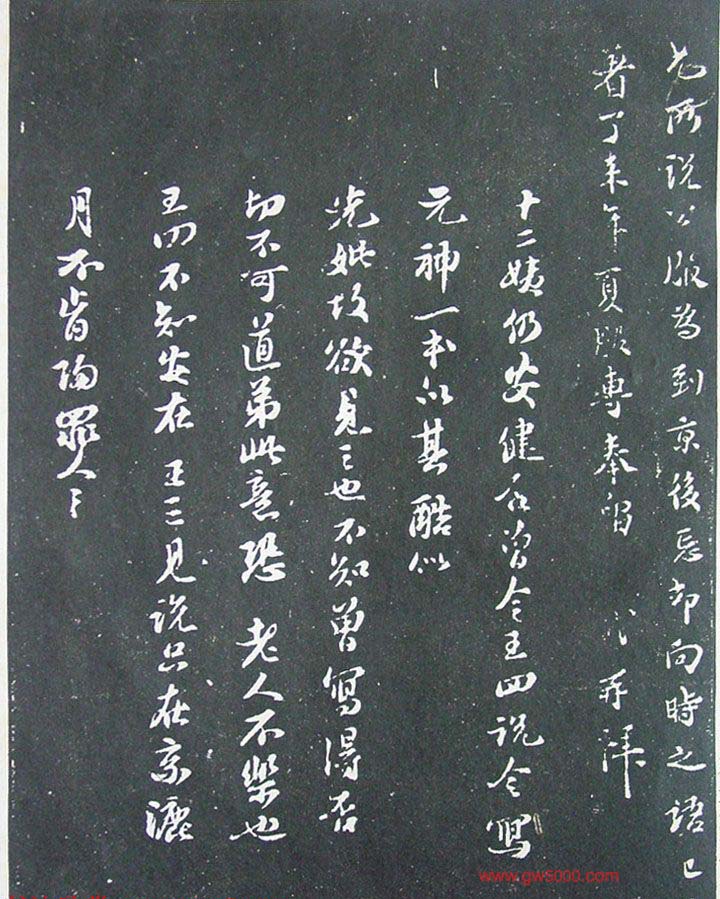 兄所说公服为到京後忘却向時之語已
着了来年夏服専奉留 再拜
十二姨仍安健否曾令王四说令寫
元神一本以其酷似
先妣故欲見之也不知曾寫得否
切不可道弟此意恐 老人不樂也
王四不知安在 王三見说只在京
月不肯 罪人之
www.gw5000.com